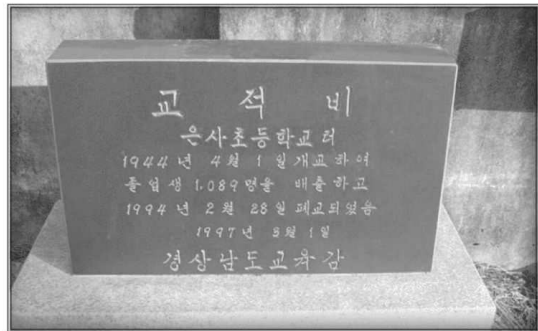 교 적 비
은사초등학교터
1944년 4월 1일개교하여
졸업생 1,089명을 배출하고
1994년 2월 28일 폐교되었음
1997년 3월 1일
경상남도교육감